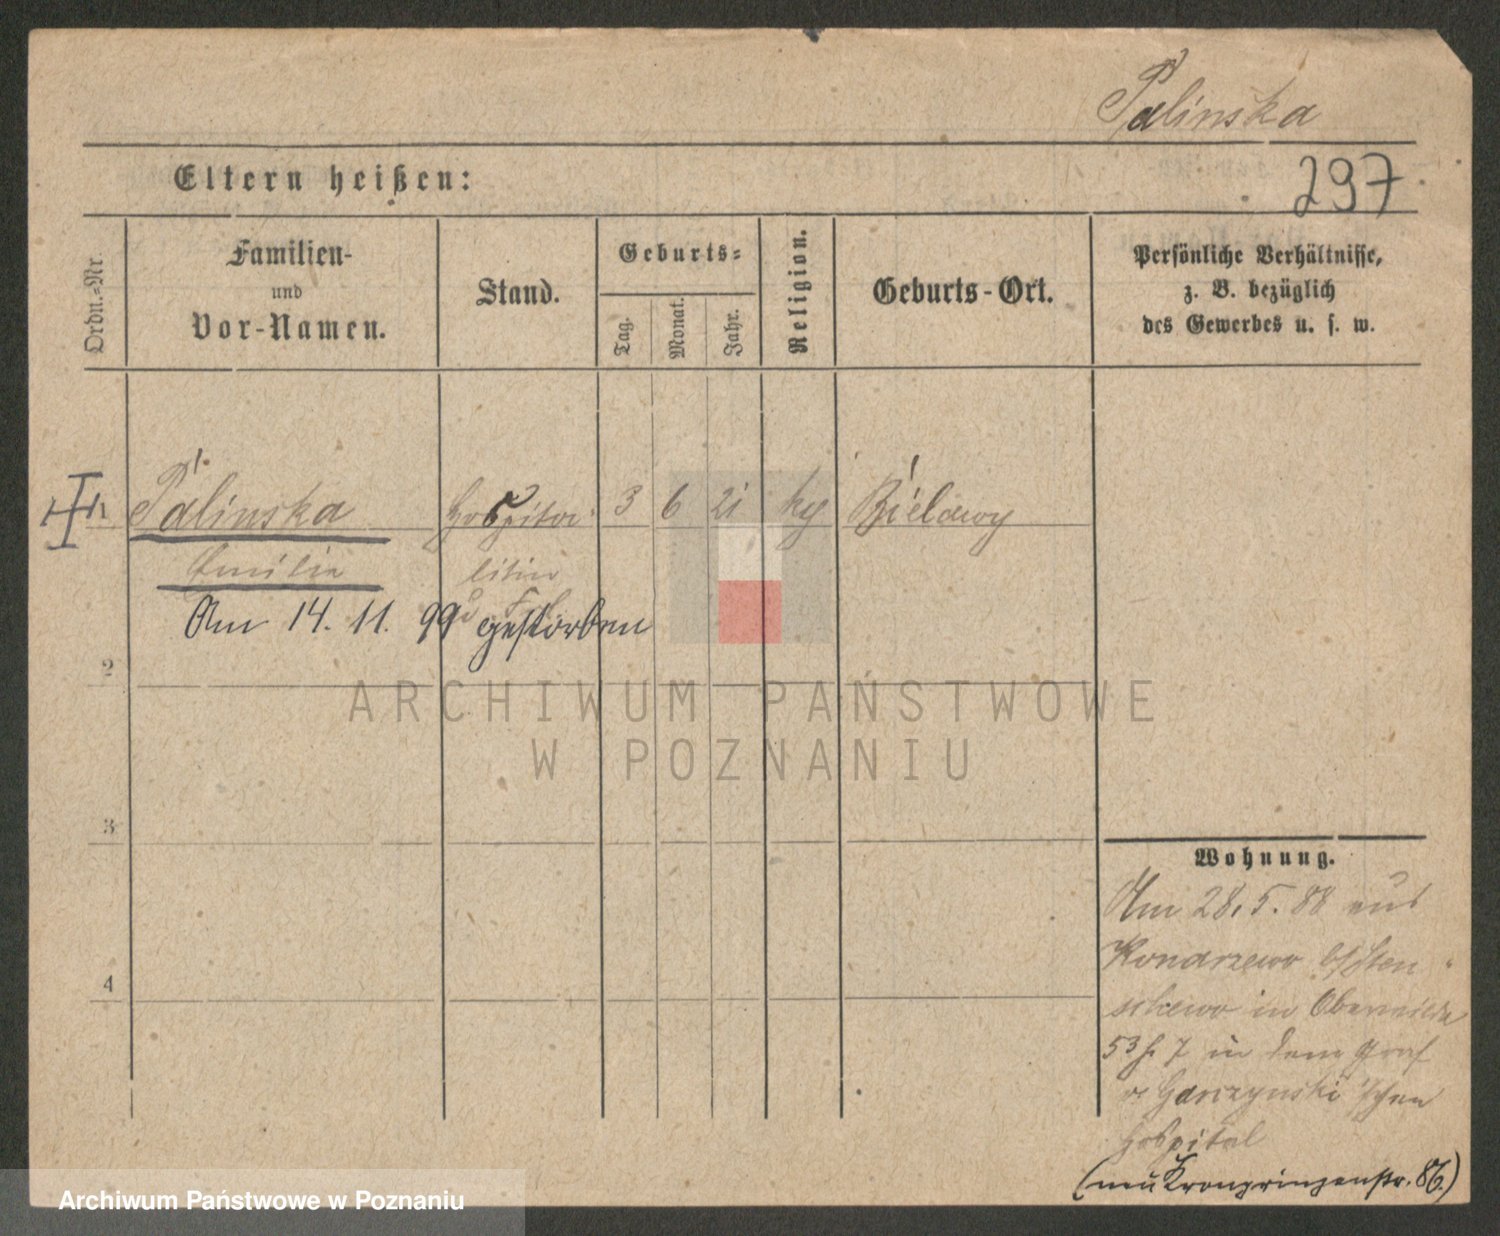 Palinska
Eltern heißen:
297
Ordn.-Nr.
Familien-
und
Vor-Namen.
Stand.
Geburts-
Tag.
Monat.
Jahr.
Religion.
Geburts-Ort.
Persönliche Verhältnisse,
z. B. bezüglich
des Gewerbes u. s. w.
1 Palinska Hospita- 3 6 21 Bielawy
Emilie litin
Am 14. 11. 99 gestorben
2
3
4
Wohnung.
Am 28.5.88 aus
Konarzewo b/Sten-
schewo in Oberwilda
53 7 in dem Graf
v Garczynski'schen
Hospital
(neu Kronprinzenstr. 86.)
ARCHIWUM PAŃSTWOWE
W POZNANIU
Archiwum Państwowe w Poznaniu